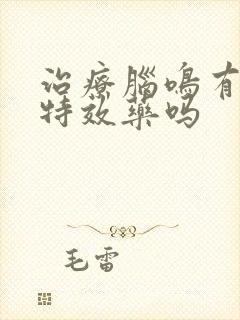 治療腦鳴有
特效藥吗
毛雷